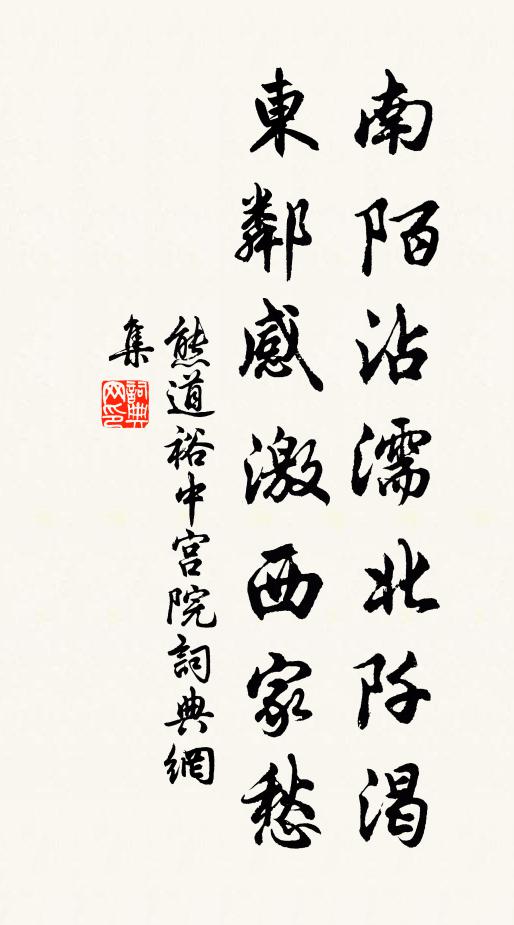 南陌沾濡北阡渴
東鄰感激西家愁
熊道裕中宮院詞典網
集
詞典
网印